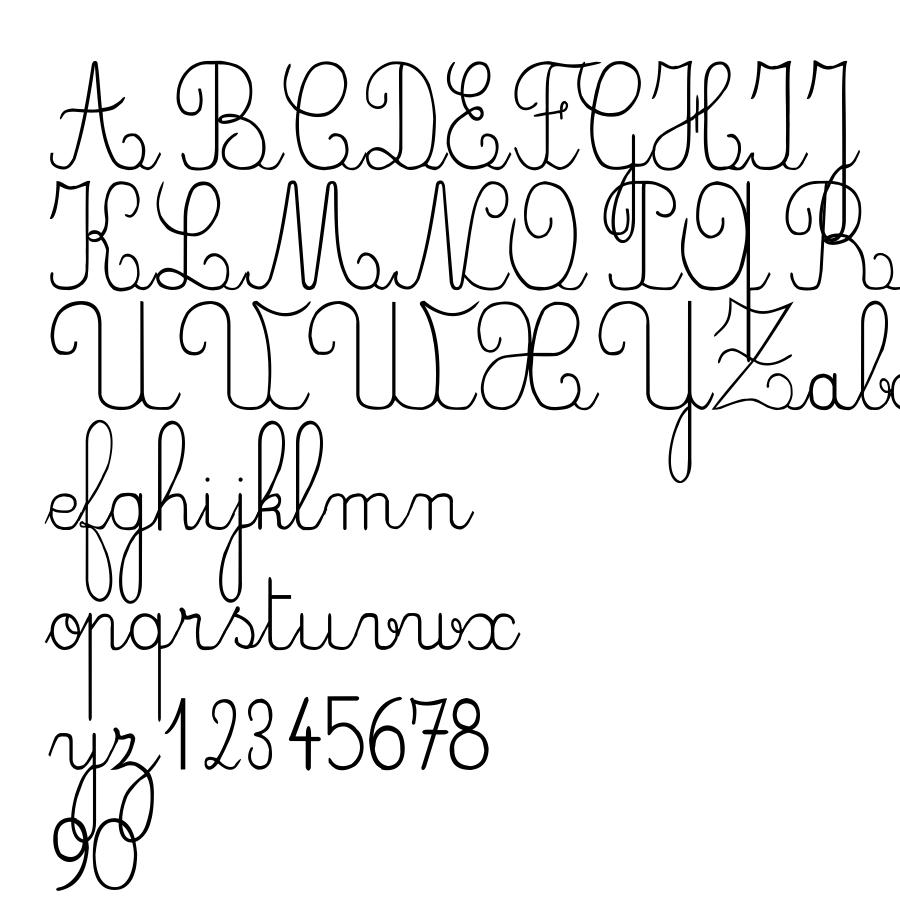 ABCDEFGHIJ
KLMNOPQR
UVWXYZab
efghijklmn
opqrstuvwx
yz12345678
90